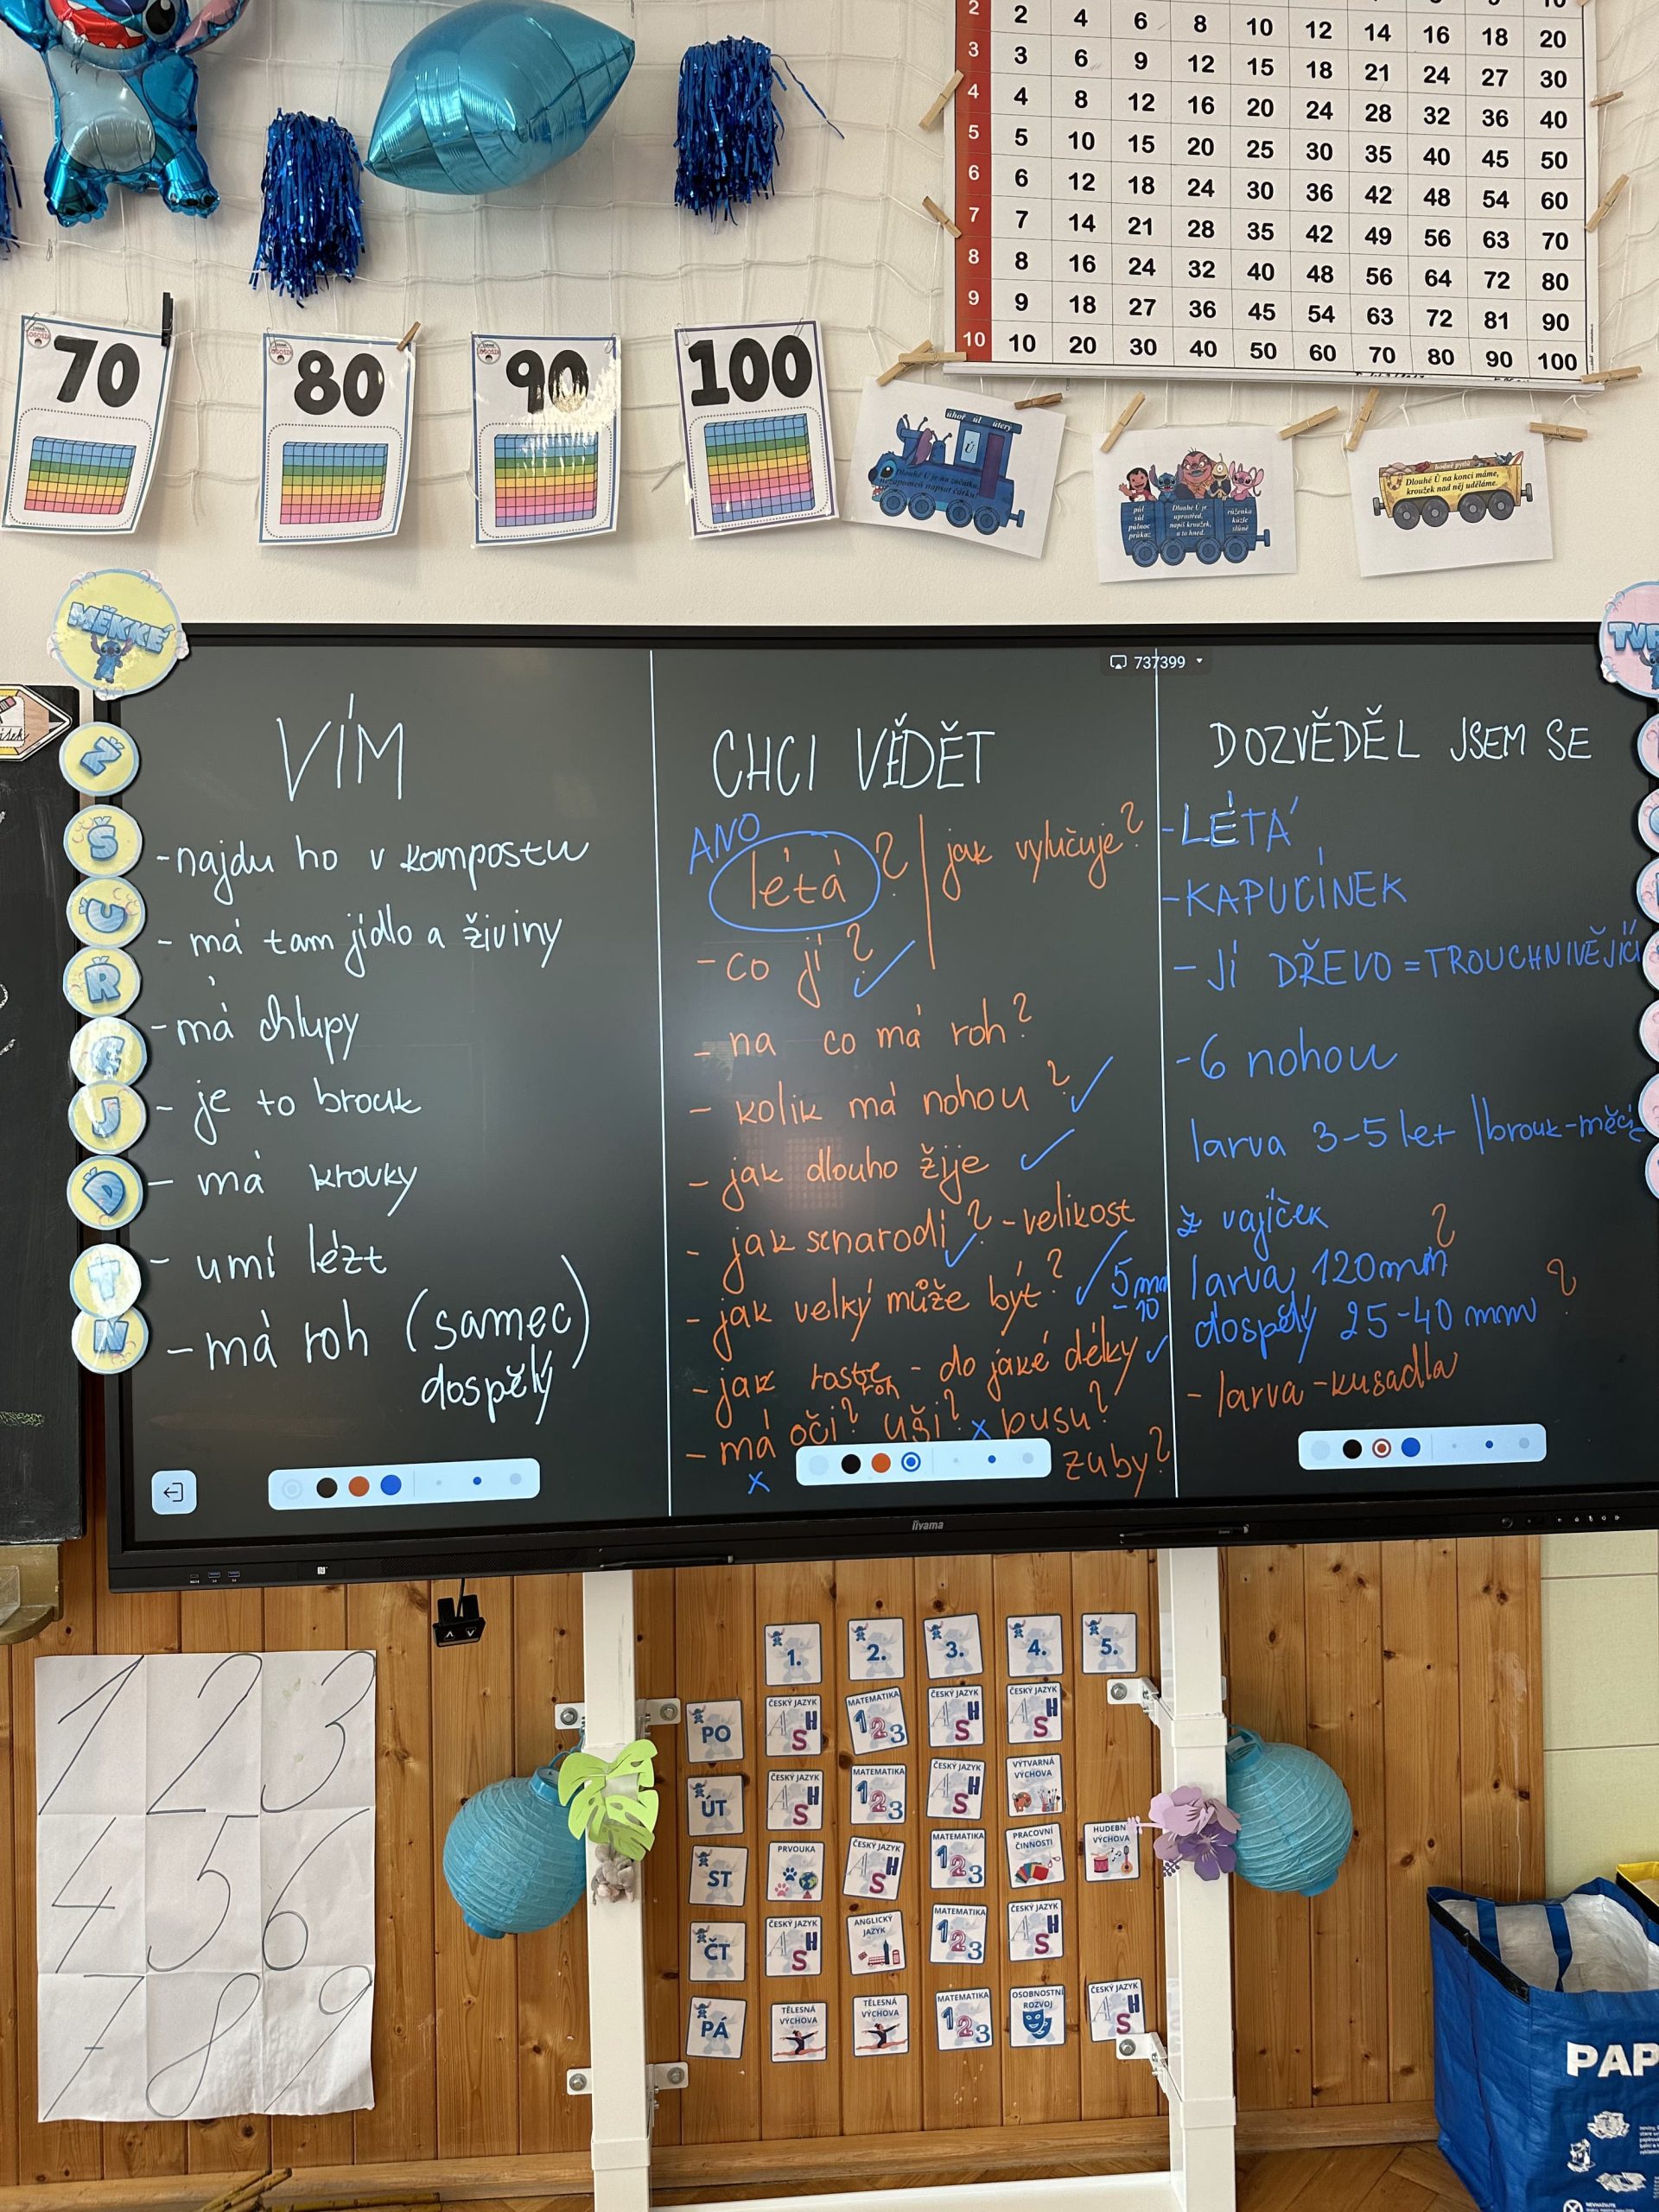 2 2 4 6 8 10 12 14 16 18 20
3 3 6 9 12 15 18 21 24 27 30
4 4 8 12 16 20 24 28 32 36 40
5 5 10 15 20 25 30 35 40 45 50
6 6 12 18 24 30 36 42 48 54 60
7 7 14 21 28 35 42 49 56 63 70
8 8 16 24 32 40 48 56 64 72 80
9 9 18 27 36 45 54 63 72 81 90
10 10 20 30 40 50 60 70 80 90 100
70
80
90
100
úhoř úl úterý
Ú
Dlouhé Ú je na začátku,
nezapomeň napsat čárku!
půl
sůl
půlnoc
průkaz
Dlouhé Ů je
uprostřed,
napiš kroužek,
a to hned.
růženka
kůzle
slůně
hodně pytlů
Dlouhé Ů na konci máme,
kroužek nad něj uděláme.
MĚKKÉ
Ž
Š
C
Ř
Č
J
Ď
Ť
Ň
737399
VÍM
-najdu ho v kompostu
- má tam jídlo a živiny
-má chlupy
- je to brouk
- má krovky
- umí lézt
- má roh (samec)
dospělý
CHCI VĚDĚT
ANO
létá?
jak vylučuje?
- co jí?
- na co má roh?
- kolik má nohou?
- jak dlouho žije
- jak se narodí? - velikost
- jak velký může být? 5 mm
- 10
- jak roste - do jaké délky
roh
- má oči? uši? x pusu?
x
zuby?
DOZVĚDĚL JSEM SE
-LÉTÁ
-KAPUCÍNEK
- JÍ DŘEVO = TROUCHNIVĚJÍCÍ
-6 nohou
larva 3-5 let | brouk-měcí
z vajíček
larva 120mm ?
dospělý 25-40 mm ?
- larva - kusadla
iiyama
1 2 3
4 5 6
7 8 9
1. 2. 3. 4. 5.
PO ČESKÝ JAZYK MATEMATIKA 123 ČESKÝ JAZYK ČESKÝ JAZYK
ÚT ČESKÝ JAZYK MATEMATIKA 123 ČESKÝ JAZYK VÝTVARNÁ VÝCHOVA
ST PRVOUKA ČESKÝ JAZYK MATEMATIKA 123 PRACOVNÍ ČINNOSTI HUDEBN VÝCHOVA
ČT ČESKÝ JAZYK ANGLICKÝ JAZYK MATEMATIKA 123 ČESKÝ JAZYK
PÁ TĚLESNÁ VÝCHOVA TĚLESNÁ VÝCHOVA MATEMATIKA 123 OSOBNOSTNÍ ROZVOJ ČESKÝ JAZYK
PAP